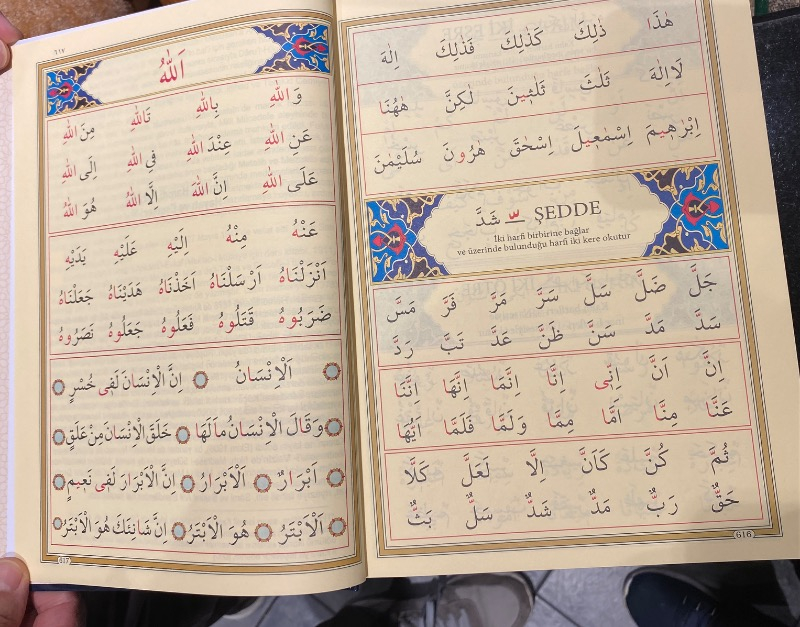 هٰذَا ذٰلِكَ كَذٰلِكَ فَذٰلِكَ اِلٰهَ
لَااِلٰهَ ثَلٰثَ ثَلٰثٖينَ لٰكِنَّ هٰهُنَا
اِبْرٰهٖيمَ اِسْمٰعٖيلَ اِسْحٰقَ هٰرُونَ سُلَيْمٰنَ
ŞEDDE ـّـ شَدَّ
İki harfi birbirine bağlar
ve üzerinde bulunduğu harfi iki kere okutur
جَلَّ ضَلَّ سَلَّ سَرَّ مَرَّ فَرَّ مَسَّ
سَدَّ مَدَّ سَنَّ ظَنَّ عَدَّ تَبَّ رَدَّ
اِنَّ اَنَّ اِنّٖى اِنَّا اِنَّمَا اِنَّهَا اِنَّنَا
عَنَّا مِنَّا اَمَّا مِمَّا وَلَمَّا فَلَمَّا اَيُّهَا
ثُمَّ كُنَّ كَاَنَّ اِلَّا لَعَلَّ كَلَّا
حَقٌّ رَبٌّ مَدٌّ شَدٌّ سَلٌّ بَثٌّ
616
٦١٧
اَللّٰهُ
وَاللّٰهِ بِاللّٰهِ تَاللّٰهِ مِنَ اللّٰهِ
عَنِ اللّٰهِ عِنْدَ اللّٰهِ فِى اللّٰهِ اِلَى اللّٰهِ
عَلَى اللّٰهِ اِنَّ اللّٰهَ اِلَّا اللّٰهُ هُوَ اللّٰهُ
عَنْهُ مِنْهُ اِلَيْهِ عَلَيْهِ يَدَيْهِ
اَنْزَلْنَاهُ اَرْسَلْنَاهُ اَخَذْنَاهُ هَدَيْنَاهُ جَعَلْنَاهُ
ضَرَبُوهُ قَتَلُوهُ فَعَلُوهُ جَعَلُوهُ نَصَرُوهُ
اَلْاِنْسَانُ اِنَّ الْاِنْسَانَ لَفٖى خُسْرٍ
وَقَالَ الْاِنْسَانُ مَالَهَا خَلَقَ الْاِنْسَانَ مِنْ عَلَقٍ
اَبْرَارٌ اَلْاَبْرَارُ اِنَّ الْاَبْرَارَ لَفٖى نَعٖيمٍ
اَلْاَبْتَرُ هُوَ الْاَبْتَرُ اِنَّ شَانِئَكَ هُوَ الْاَبْتَرُ
617